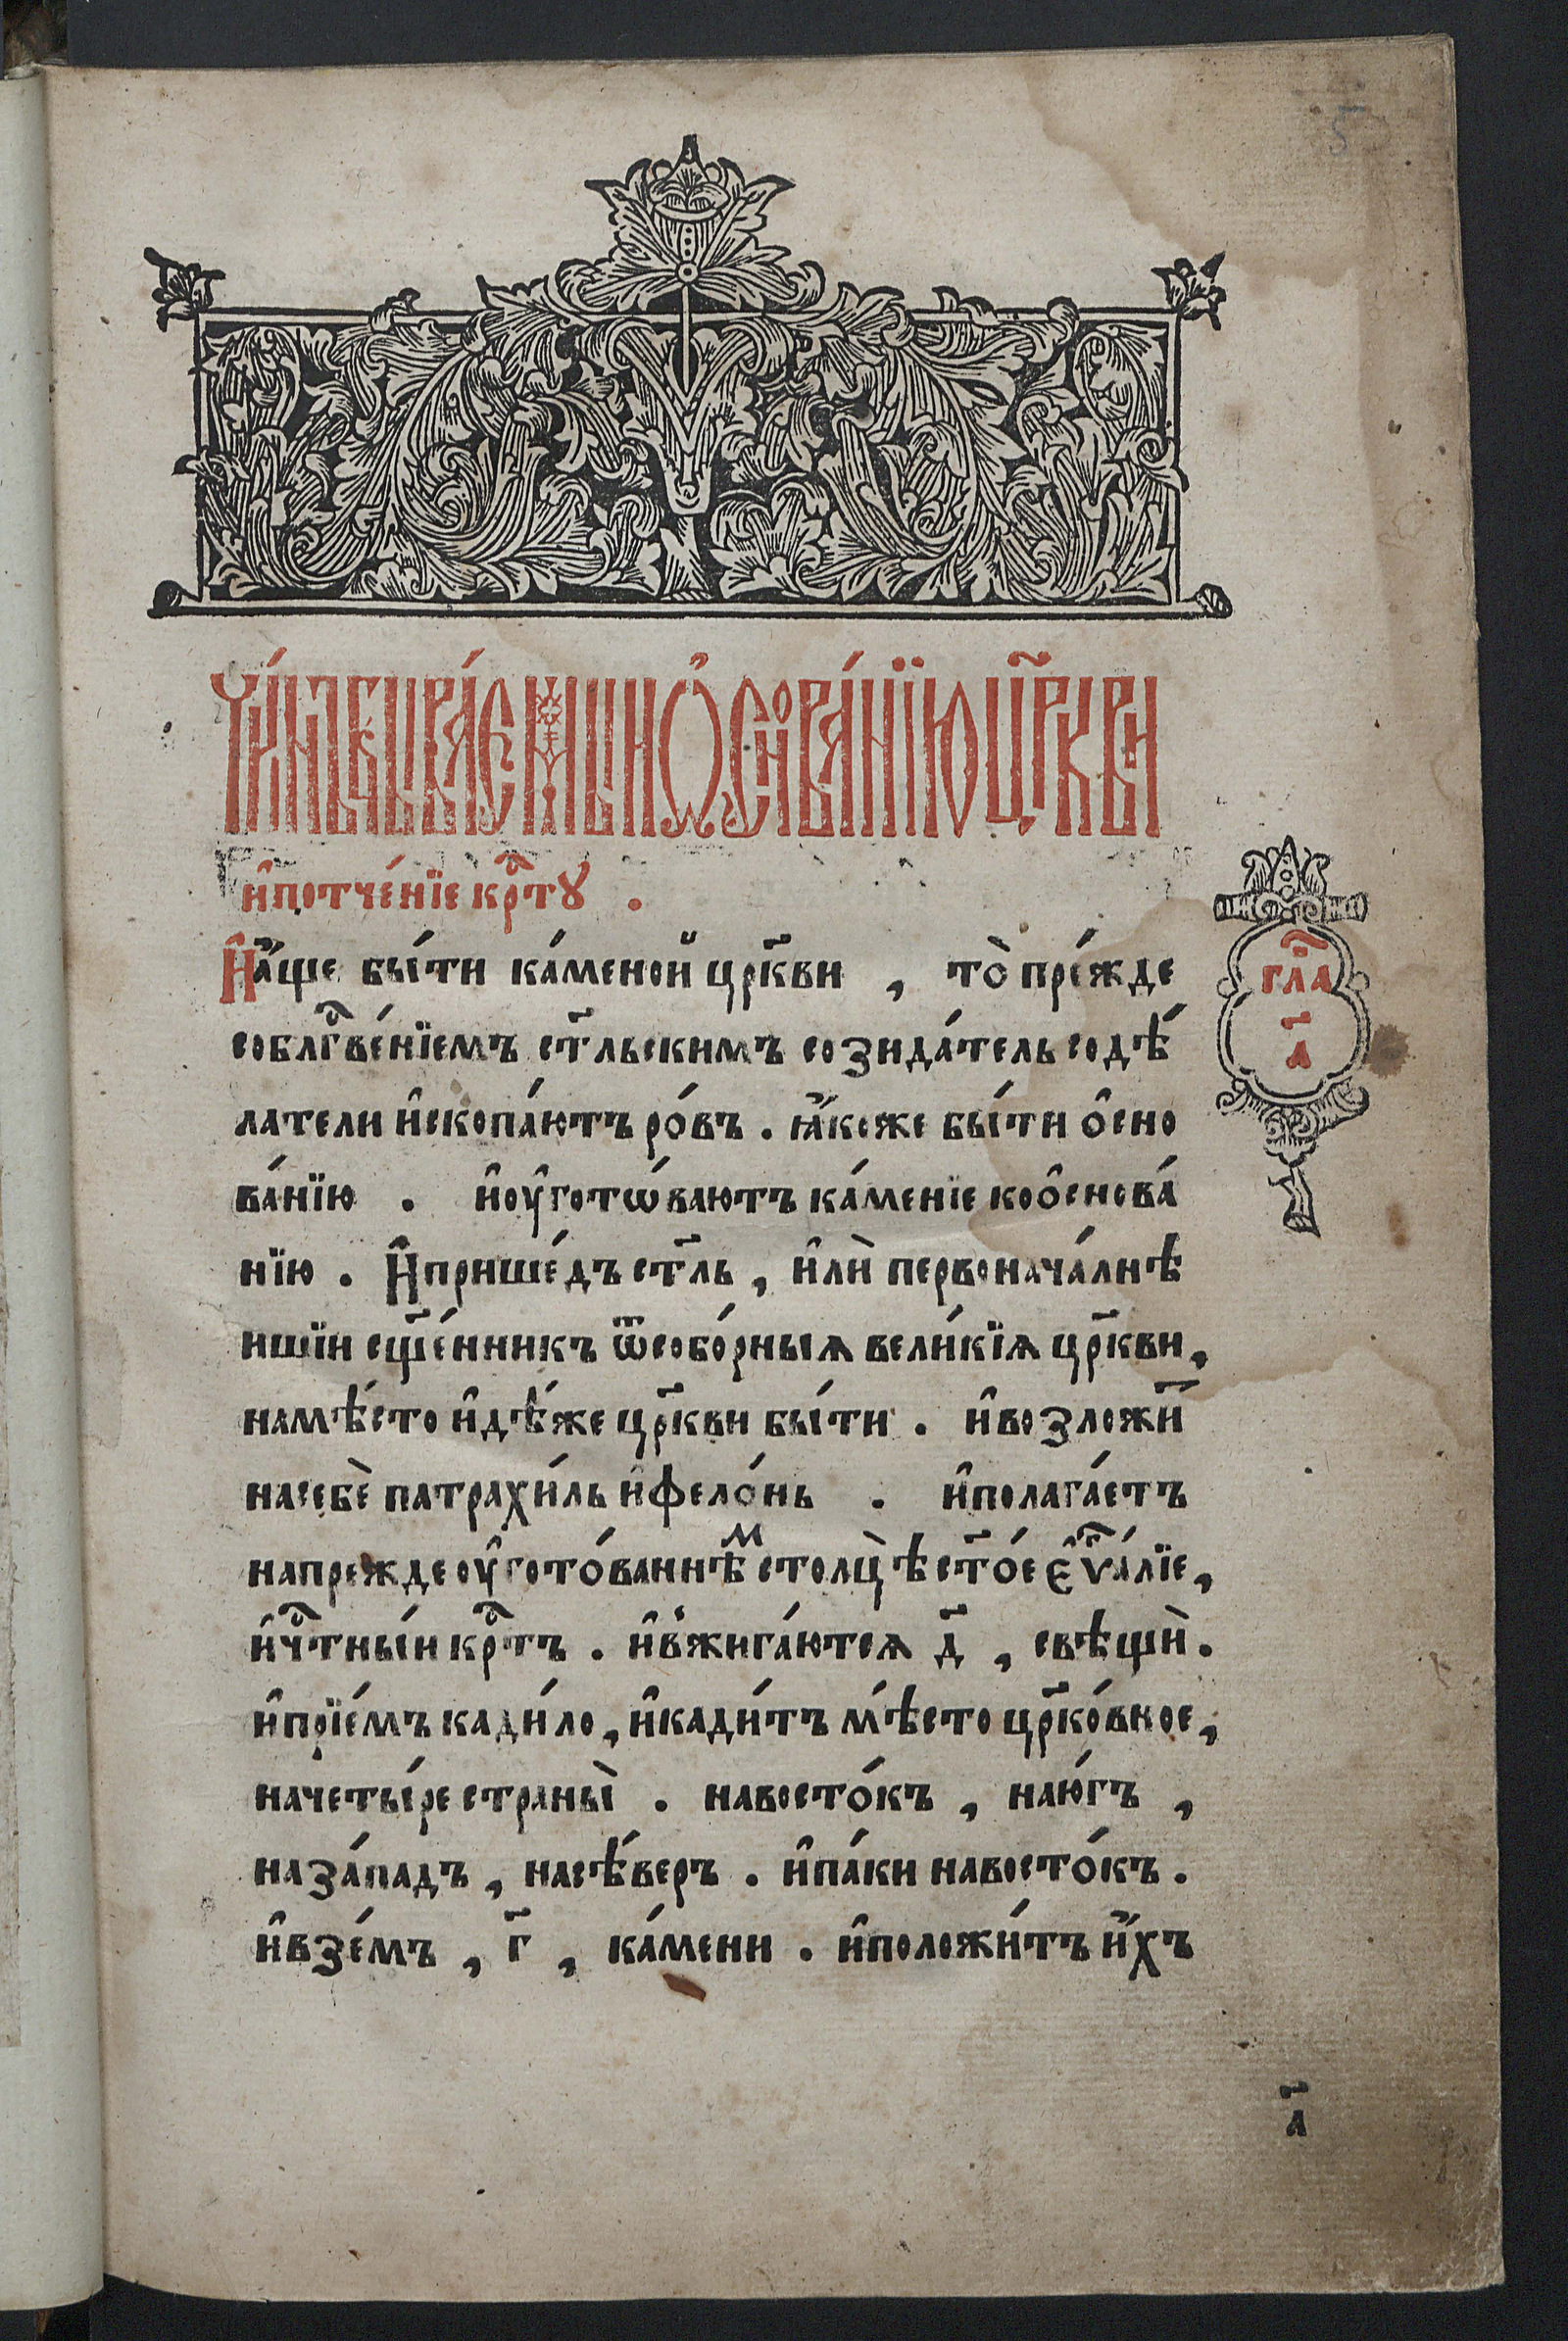 5
Чи́нъ быва́емый ѡ҆снова́нїю цр҃кви
и҆потче́нїе крⷭ҇тꙋ .
И҆а҆́ще бы́ти ка́меной цр҃кви , то̀ пре́жде
соблгⷭ҇ве́нїемъ ст҃льскимъ созида́тель содѣ́
латели и҆скопа́ютъ ро́въ . ꙗ҆́коже бы́ти о҆сно
ва́нїю . и҆оу҆готѡ́ваютъ ка́менїе коо҆снова́
нїю . И҆прише́дъ ст҃ль , и҆лѝ первонача́лнѣ
ишїи сщ҃е́нникъ ѿсобо́рныѧ вели́кїѧ цр҃кви ,
намѣ́сто и҆дѣ́же цр҃кви бы́ти . и҆возложи́
насебѐ патрахи́ль и҆фело́нь . и҆полага́етъ
напрежде оу҆гото́ваннѣⷨ столцѣ̀ ст҃о́е є҆ѵⷢ҇а́лїе ,
и҆чⷭ҇тны́и крⷭ҇тъ . и҆вжига́ютсѧ д҃ , свѣщѝ .
и҆прїе́мъ кади́ло , и҆кади́тъ мѣ́сто цр҃ко́вное ,
начеты́ре страны̀ . навосто́къ , наю́гъ ,
наза́падъ , насѣ́веръ . и҆па́ки навосто́къ .
и҆взе́мъ , г҃ , ка́мени . и҆положи́тъ и҆́хъ
глⷡ҇а
а҃
а҃